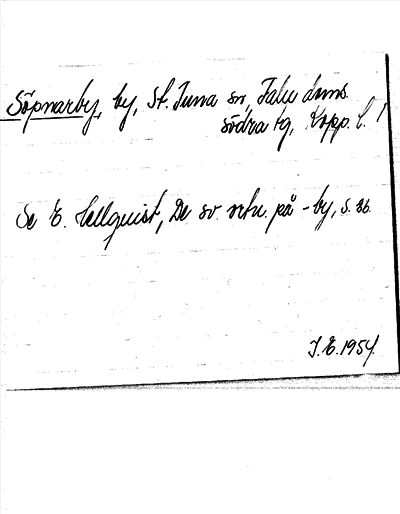 Söpnarby, by, St. Tuna sn, Falu doms.
södra tg, Kopp. l.
Se E. Hellquist, De sv. ortn. på -by, s. 86.
J.E. 1954.